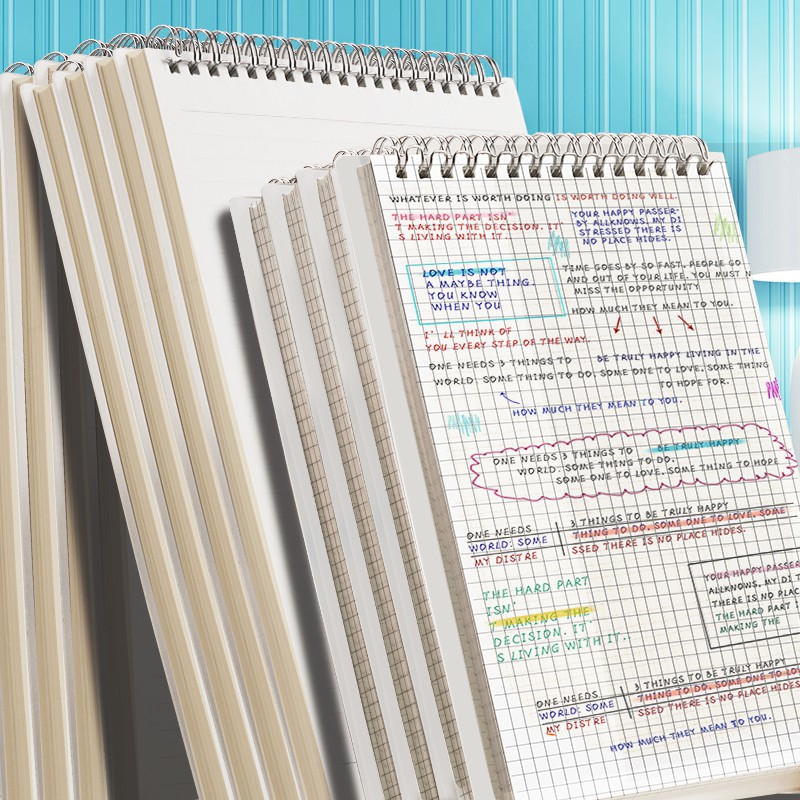 WHATEVER IS WORTH DOING IS WORTH DOING WELL.
THE HARD PART ISN'
T MAKING THE DECISION. IT'
S LIVING WITH IT.
YOUR HAPPY PASSER-
BY ALLKNOWS, MY DI
STRESSED THERE IS
NO PLACE HIDES.
LOVE IS NOT
A MAYBE THING.
YOU KNOW
WHEN YOU
TIME GOES BY SO FAST, PEOPLE GO
AND OUT OF YOUR LIFE. YOU MUST N
MISS THE OPPORTUNITY
HOW MUCH THEY MEAN TO YOU.
I' LL THINK OF
YOU EVERY STEP OF THE WAY.
ONE NEEDS 3 THINGS TO BE TRULY HAPPY LIVING IN THE
WORLD: SOME THING TO DO, SOME ONE TO LOVE, SOME THING
TO HOPE FOR.
HOW MUCH THEY MEAN TO YOU.
ONE NEEDS 3 THINGS TO BE TRULY HAPPY
WORLD: SOME THING TO DO.
SOME ONE TO LOVE, SOME THING TO HOPE
ONE NEEDS 3 THINGS TO BE TRULY HAPPY
WORLD: SOME THING TO DO, SOME ONE TO LOVE, SOME
MY DISTRE SSED THERE IS NO PLACE HIDES.
THE HARD PART
ISN'
T MAKING THE
DECISION. IT'
S LIVING WITH IT.
YOUR HAPPY PASSER
ALLKNOWS, MY DI
THERE IS NO PLAC
THE HARD PART
MAKING THE
ONE NEEDS 3 THINGS TO BE TRULY HAPPY
WORLD: SOME THING TO DO, SOME ONE TO LO
MY DISTRE SSED THERE IS NO PLACE HIDES
HOW MUCH THEY MEAN TO YOU.